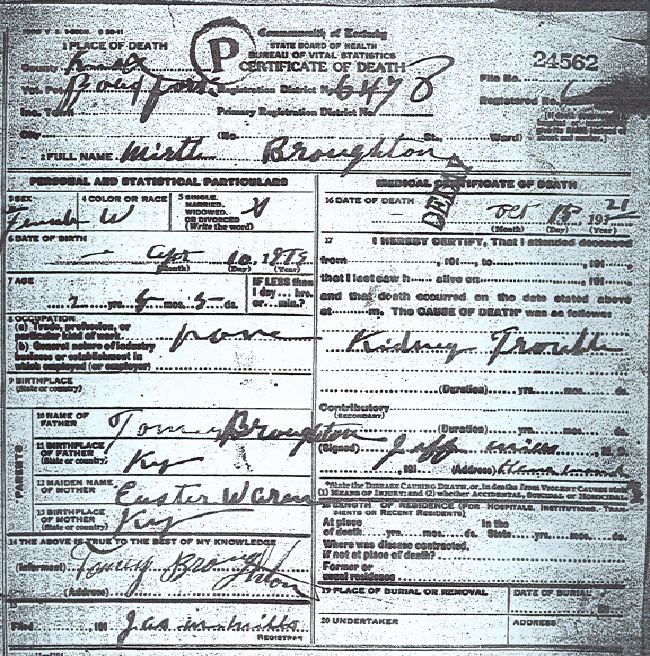 Commonwealth of Kentucky
STATE BOARD OF HEALTH
BUREAU OF VITAL STATISTICS
CERTIFICATE OF DEATH
P
1 PLACE OF DEATH
File No. 24562
Registration District No. 6478
Registered No.
Primary Registration District No.
Inc. Town
City (No. St., Ward)
2 FULL NAME Mirth Broughton
PERSONAL AND STATISTICAL PARTICULARS
3 SEX Female
4 COLOR OR RACE W
5 SINGLE, MARRIED, WIDOWED, OR DIVORCED (Write the word) S
6 DATE OF BIRTH
(Month) (Day) (Year)
7 AGE 2 yrs. mos. 5 ds.
IF LESS than 1 day ... hrs. or ... min.?
8 OCCUPATION
(a) Trade, profession, or particular kind of work
(b) General nature of industry business or establishment in which employed (or employer)
none
9 BIRTHPLACE
(State or country)
PARENTS
10 NAME OF FATHER Tomey Broughton
11 BIRTHPLACE OF FATHER (State or country) Ky
12 MAIDEN NAME OF MOTHER Easter Waren
13 BIRTHPLACE OF MOTHER (State or country) Ky
14 THE ABOVE IS TRUE TO THE BEST OF MY KNOWLEDGE
(Informant) Tomey Broughton
(Address)
15
Filed , 191 Jas m mills
REGISTRAR
MEDICAL CERTIFICATE OF DEATH
DELAY
16 DATE OF DEATH Oct 15 1921
(Month) (Day) (Year)
17 I HEREBY CERTIFY, That I attended deceased
from , 191 , to , 191 ,
that I last saw h alive on , 191 ,
and that death occurred on the date stated above
at m. The CAUSE OF DEATH* was as follows:
Kidney Trouble
(Duration) yrs. mos. ds.
Contributory
(SECONDARY)
(Duration) yrs. mos. ds.
(Signed) Jeff mills, M. D.
, 191 (Address)
*State the DISEASE CAUSING DEATH, or, in deaths from VIOLENT CAUSES
(1) MEANS OF INJURY; and (2) whether ACCIDENTAL, SUICIDAL or HOMICIDAL
18 LENGTH OF RESIDENCE (FOR HOSPITALS, INSTITUTIONS, TRANSIENTS OR RECENT RESIDENTS)
At place of death yrs. mos. ds. In the State yrs. mos. ds.
Where was disease contracted,
if not at place of death?
Former or
usual residence
19 PLACE OF BURIAL OR REMOVAL
DATE OF BURIAL
191
20 UNDERTAKER
ADDRESS